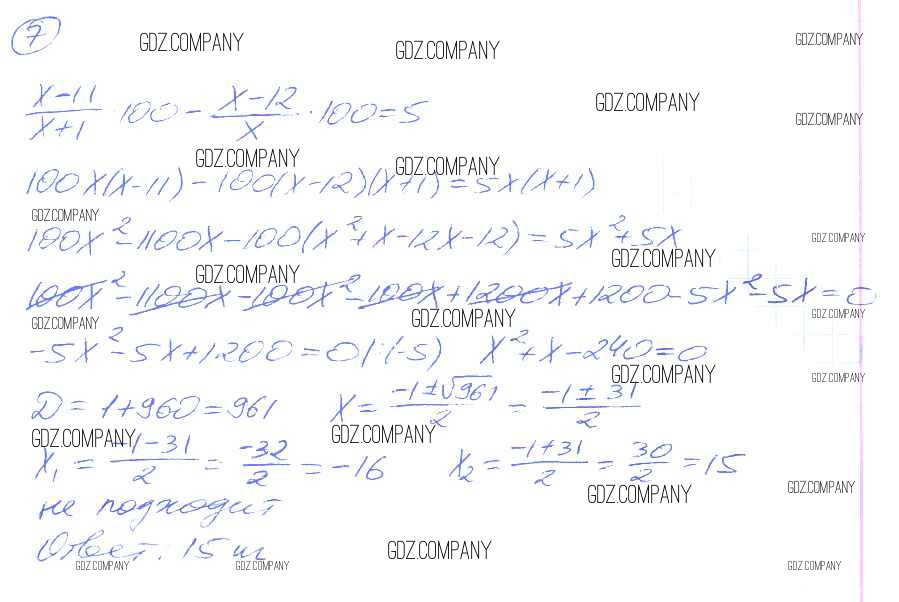 7
GDZ.COMPANY GDZ.COMPANY GDZ.COMPANY
(x-11)/(x+1) · 100 - (x-12)/x · 100 = 5
GDZ.COMPANY GDZ.COMPANY
GDZ.COMPANY GDZ.COMPANY
100x(x-11) - 100(x-12)(x+1) = 5x(x+1)
GDZ.COMPANY
100x² - 1100x - 100(x² + x - 12x - 12) = 5x² + 5x
GDZ.COMPANY GDZ.COMPANY
GDZ.COMPANY
100x² - 1100x - 100x² - 100x + 1200x + 1200 - 5x² - 5x = 0
GDZ.COMPANY GDZ.COMPANY GDZ.COMPANY
-5x² - 5x + 1200 = 0 |:(-5) x² + x - 240 = 0
GDZ.COMPANY GDZ.COMPANY
D = 1 + 960 = 961 x = (-1 ± √961)/2 = (-1 ± 31)/2
GDZ.COMPANY GDZ.COMPANY
x₁ = (-1-31)/2 = -32/2 = -16 x₂ = (-1+31)/2 = 30/2 = 15
GDZ.COMPANY GDZ.COMPANY
не подходит
Ответ: 15 ш
GDZ.COMPANY
GDZ.COMPANY GDZ.COMPANY GDZ.COMPANY